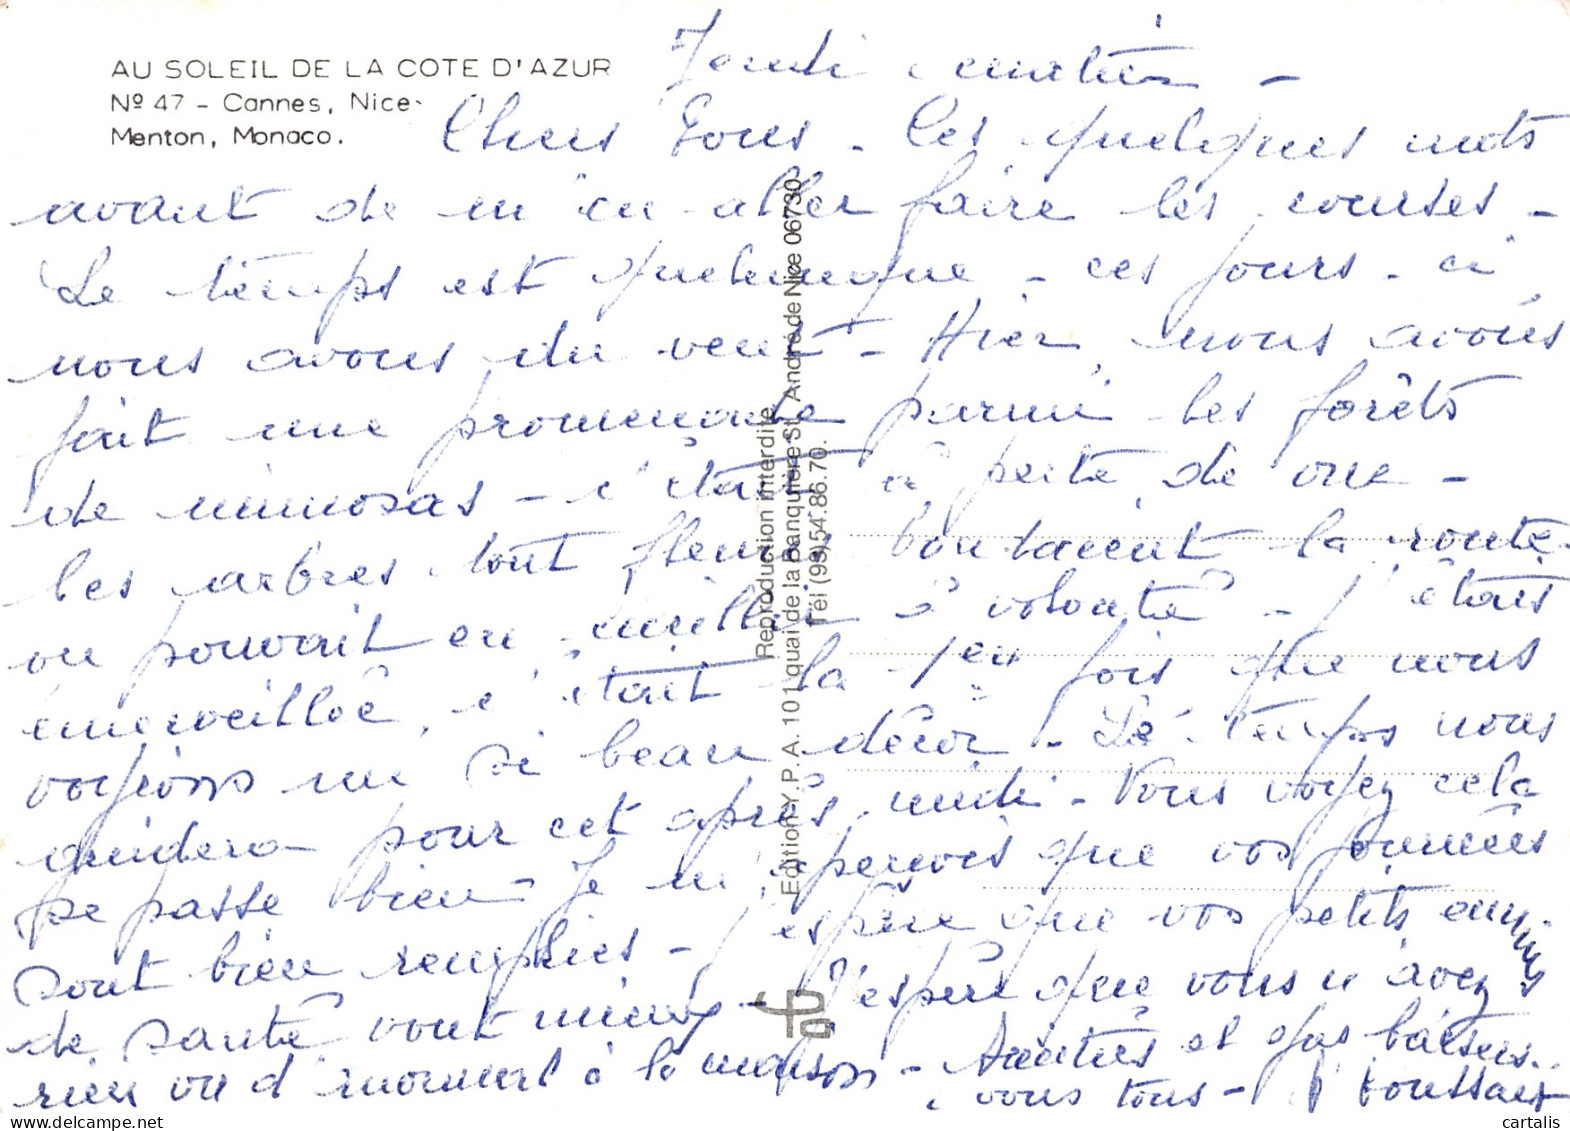 AU SOLEIL DE LA COTE D'AZUR
Nº 47 - Cannes, Nice
Menton, Monaco.
Jeudi matin -
Chers Tous - Ces quelques mots
avant de m'en aller faire les courses -
Le temps est quelconque - ces jours-ci
nous avons du vent - Hier nous avons
fait une promenade parmi les forêts
de mimosas - c'était à perte de vue -
les arbres tout fleuris bordaient la route
on pouvait en cueillir à volonté - J'étais
émerveillée, c'était la 1ère fois que nous
voyions un si beau décor - Le temps nous
guidera pour cet après midi - Vous voyez cela
se passe bien - Je m'aperçois que vos journées
sont bien remplies - J'espère que vos petits ennuis
de santé vont mieux - J'espère que vous n'avez
rien vu d'anormal à la maison - Amitiés et gros baisers
vous tous -
Reproduction interdite
Edition Y.P.A. 101 quai de la Banquière St. André de Nice 06730
Tél (93) 54.86.70.
ypa
cartalis